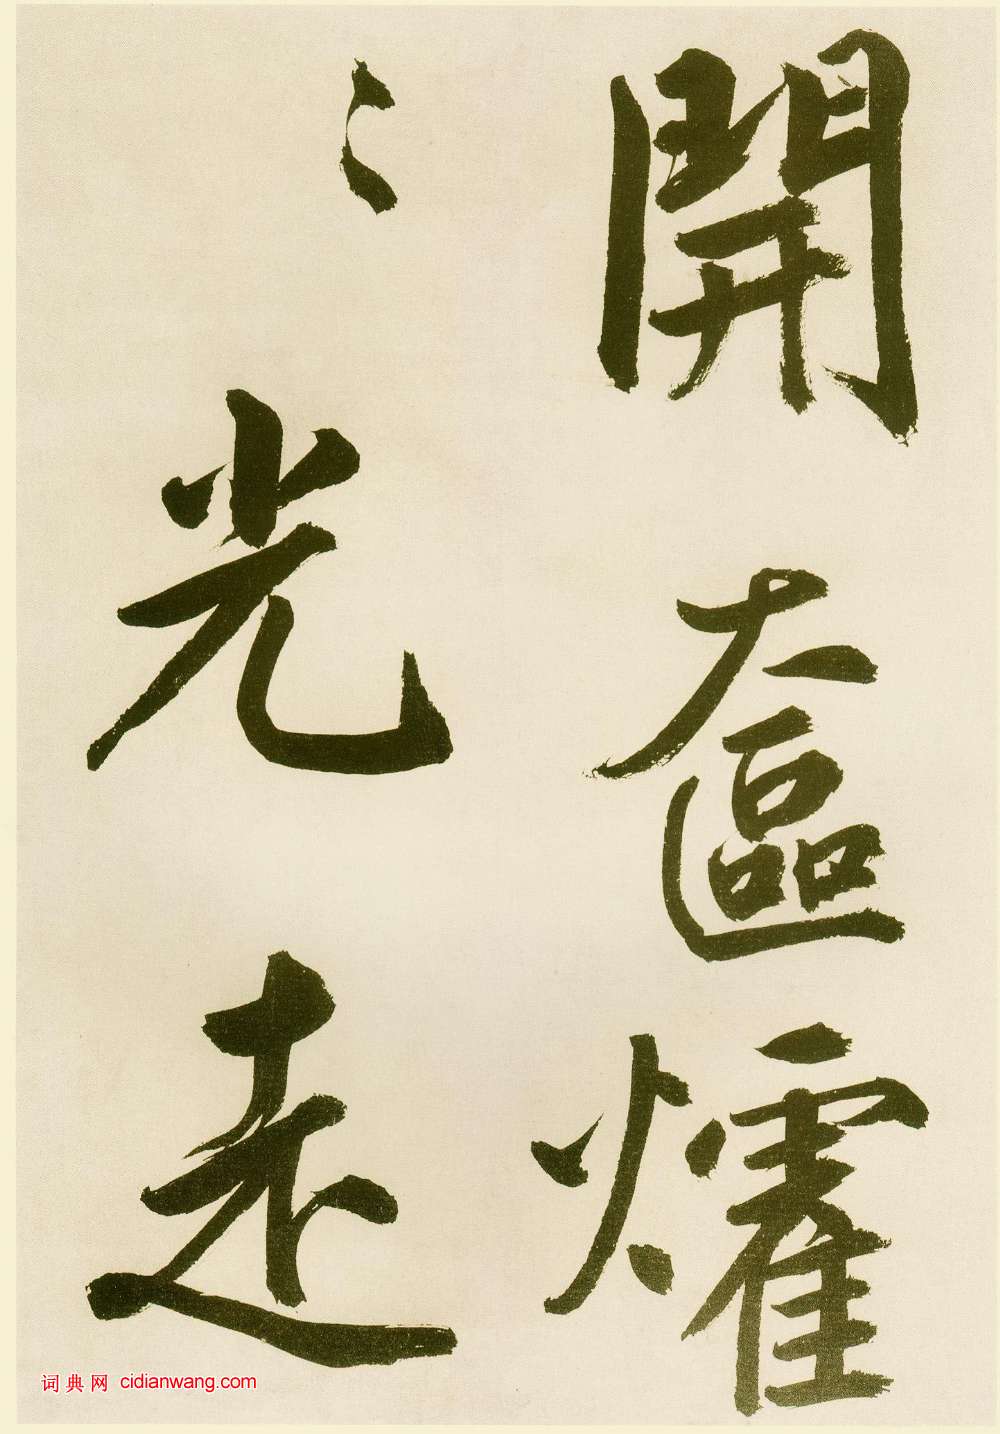 開奩㸌
〻光走
词典网 cidianwang.com